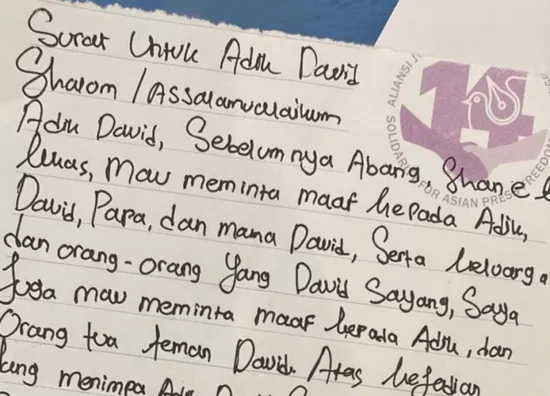 Surat Untuk Adik David
Shalom / Assalamualaikum
Adik David, Sebelumnya Abang, Shane l
lukas, mau meminta maaf kepada Adik,
David, Papa, dan mama David, Serta keluarga
dan orang-orang Yang David Sayang, Saya
Juga mau meminta maaf kepada Adik, dan
Orang tua teman David. Atas kejadian
yang menimpa Adik David
ALIANSI J
SOLIDARI FOR ASIAN PRESS FREEDOM